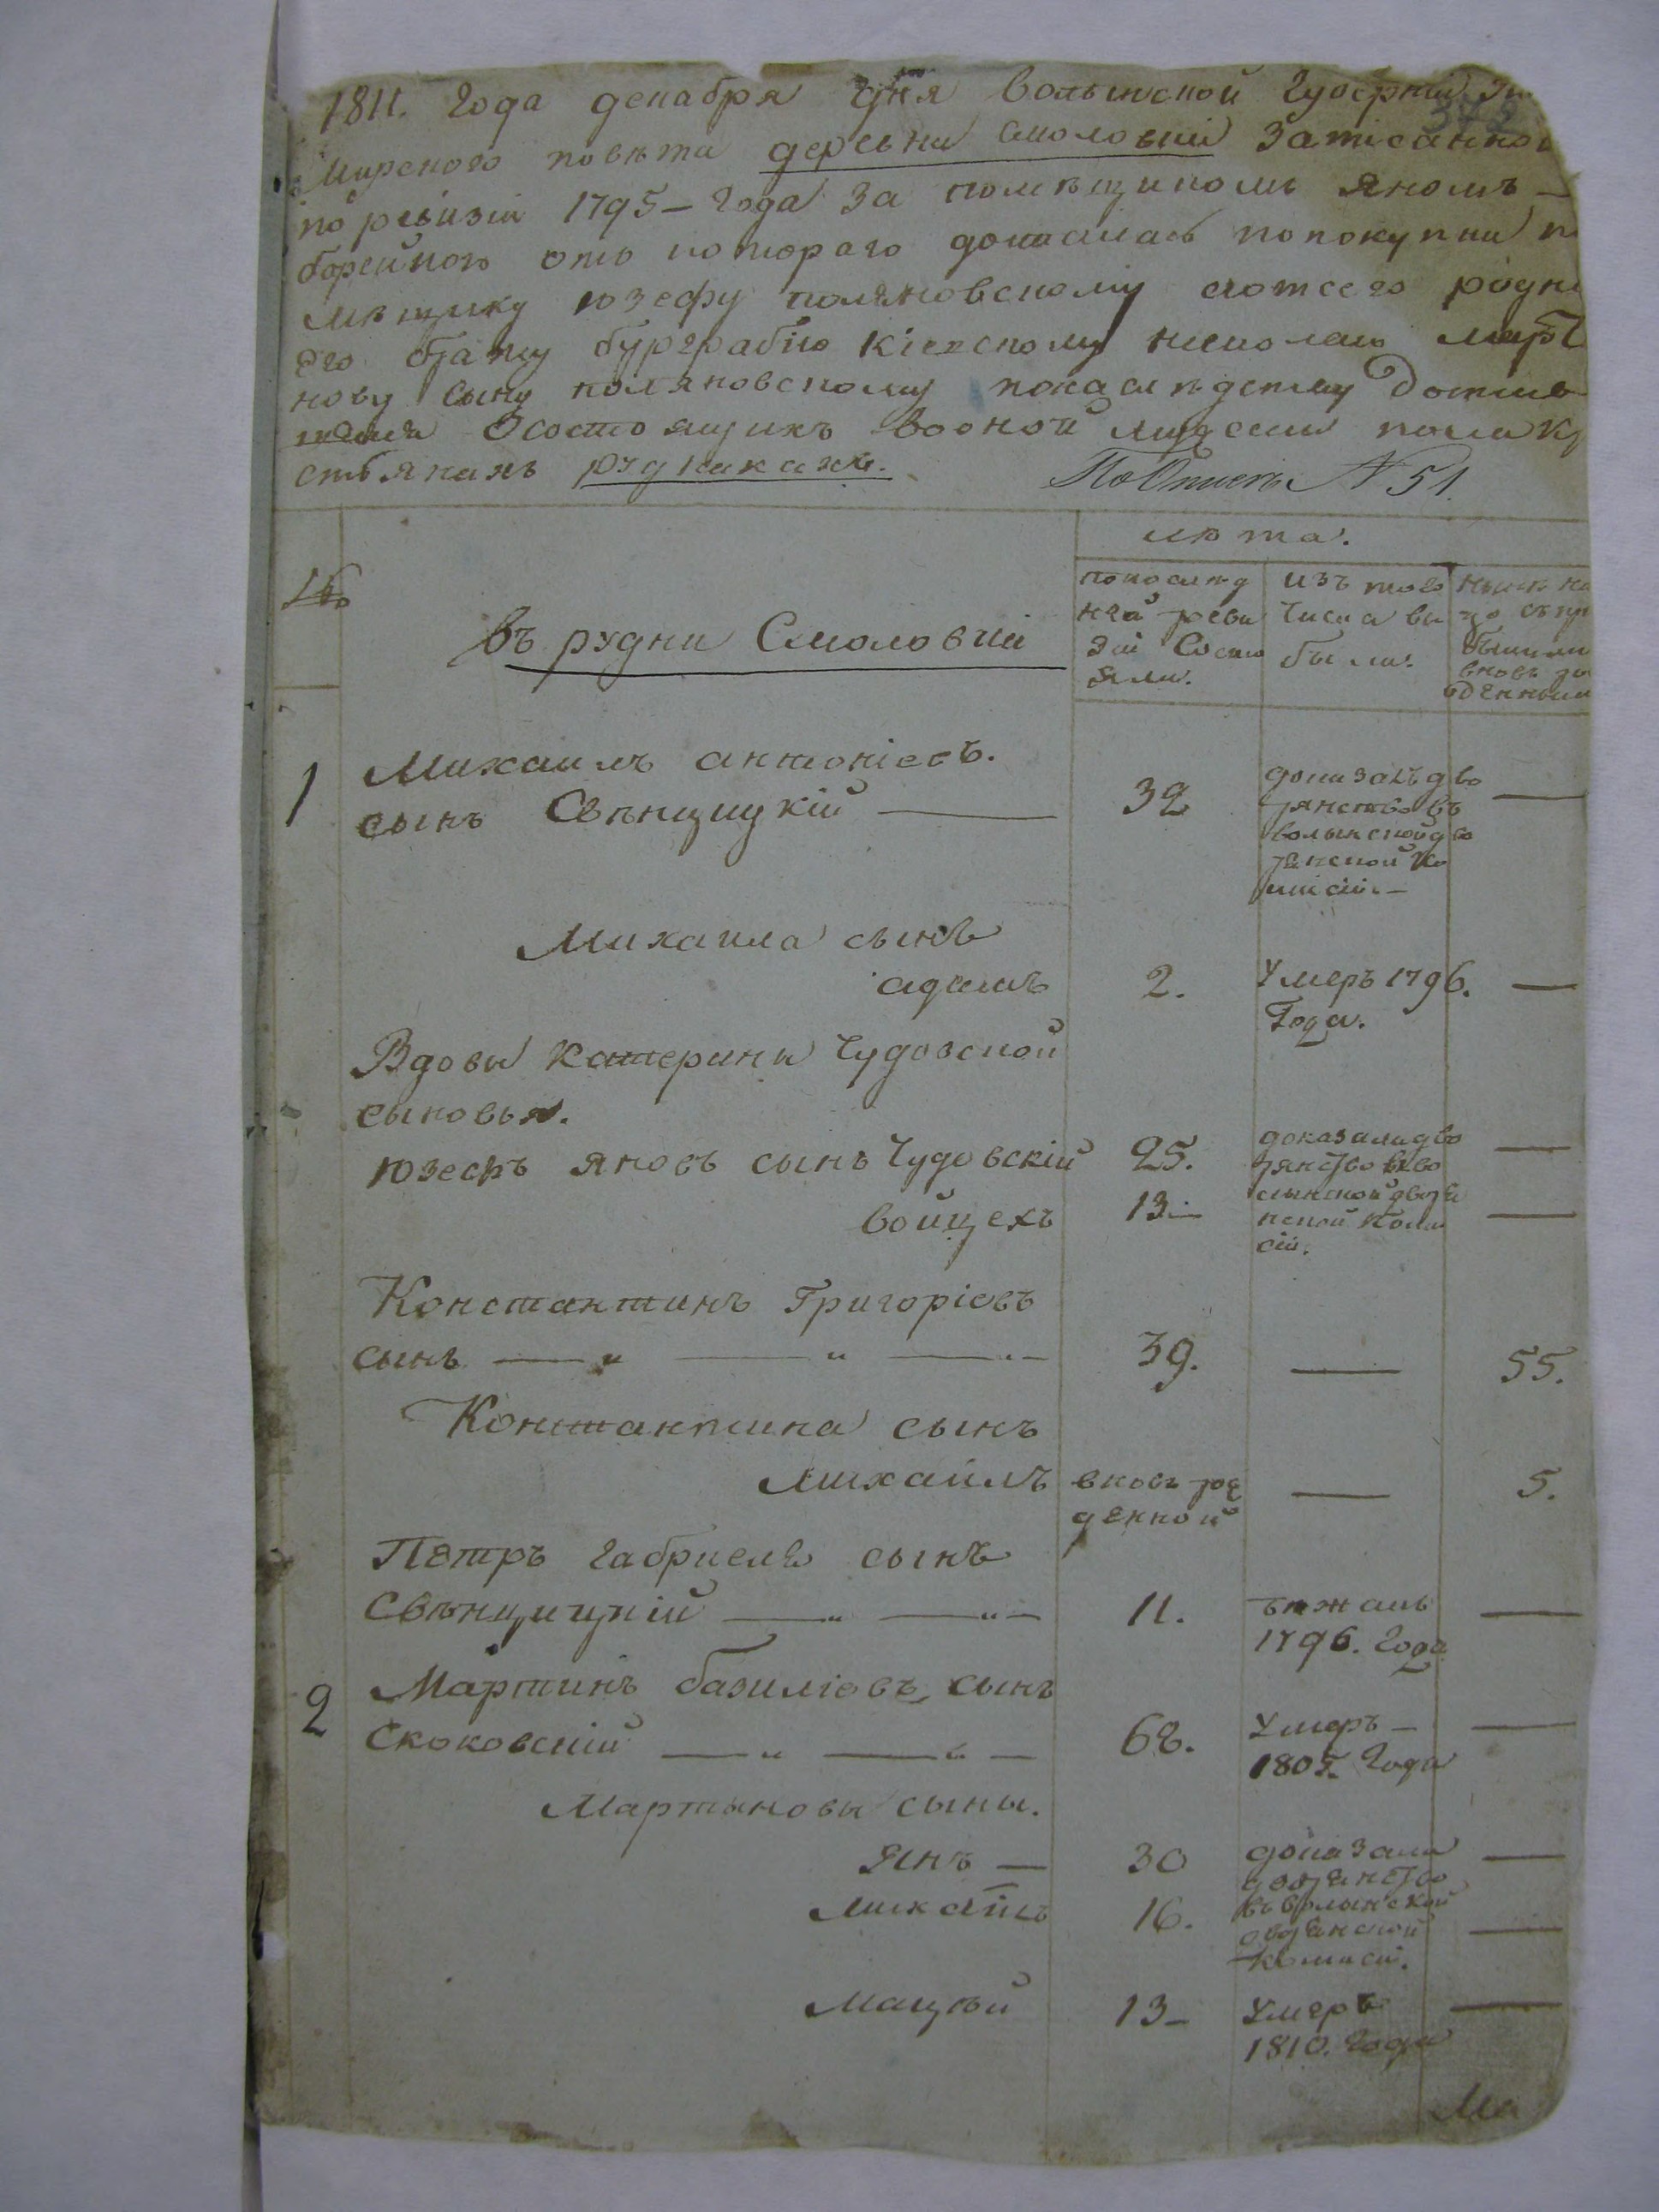 1811. Года декабря дня Волынской Губерніи
Мирского повѣта деревни Смоловки записанно
по ревизіи 1795 – года за помѣщикомъ Яномъ –
отъ котораго досталась по покупки п
мѣщику Юзефу Поляновскому а отсего родн
его брату бурграбію Кіевскому Николаю Март
нову сыну Поляновскому
О состоящихъ въ оной мужеска пола кр
стьянахъ рудникахъ.
По Описи N 51.
лѣта.
№
въ рудни Смоловки
по послѣд
ней реви
зіи состо
яли.
изъ того
числа вы
были.
нынѣ на
вновь ро
жденными
1
Михаилъ Антоніевъ.
сынъ Свѣнцицкій
32
доказалъ дво
рянство въ
волынской дво
рянской ко
мисіи. –
—
Михаила сынъ
адамъ
2.
Умеръ 1796.
Года.
—
Вдовы Катерины Чудовской
сыновья.
Юзефъ Яновъ сынъ Чудовскій
25.
доказали дво
рянство вво
лынской дворя
нской Коми
сіи.
—
войцехъ
13 –
—
Константинъ Григоріевъ
сынъ
39.
—
55.
Константина сынъ
Михаилъ
вновь рож
денной
—
5.
Петръ Габріеля сынъ
Свѣнцицкій
11.
бѣжалъ
1796. Года
—
2
Мартинъ базиліевъ сынъ
Скоковскій
68.
Умеръ –
1805. Года
—
Мартыновы сыны.
Янъ —
30
доказали
дворянство
въ Волынской
дворянской
Комисіи.
—
Михаилъ
16.
—
Мацѣй
13 –
Умеръ
1810. Года
—
Ма